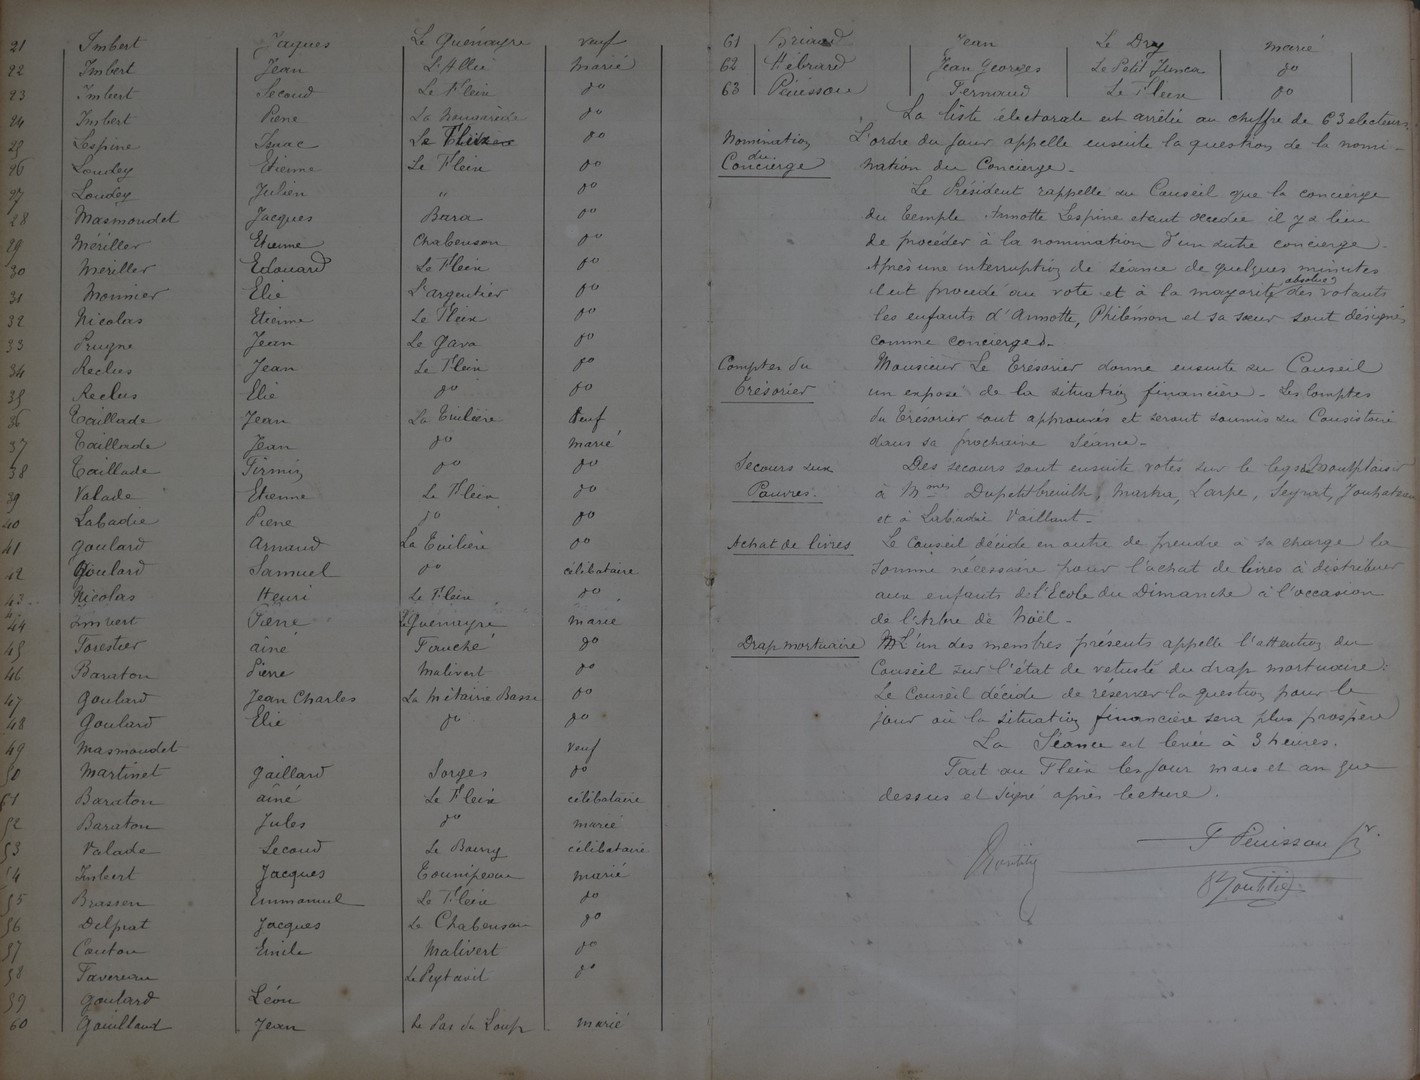 21 Imbert Jaques Le Quénayre veuf
22 Imbert Jean L'Allié Marié
23 Imbert Second Le Fleix do
24 Imbert Pierre do
25 Lespine Isaac Le Fleix do
26 Loudey Etienne Le Fleix do
27 Loudey Julien " do
28 Masmoudet Jacques Bara do
29 Mériller Etienne Chabenson do
30 Mériller Edouard Le Fleix do
31 Monnier Elie L'argentier do
32 Nicolas Etienne Le Fleix do
33 Prugne Jean Le Gava do
34 Reclus Jean Le Fleix do
35 Reclus Elie do do
36 Taillade Jean La Tuilière Veuf
37 Taillade Jean do marié
38 Taillade Firmin do do
39 Valade Etienne Le Fleix do
40 Labadie Pierre do do
41 Goulard Armand La Tuilière do
42 Goulard Samuel do célibataire
43 Nicolas Henri Le Fleix do
44 Imbert Pierre Le Quenayre marié
45 Forestier aîné Fauché do
46 Baraton Pierre Malivert do
47 Goulard Jean Charles La Métairie Basse do
48 Goulard Elie do do
49 Masmoudet veuf
50 Martinet Gaillard Sorges do
51 Baraton aîné Le Fleix célibataire
52 Baraton Jules do marié
53 Valade Second Le Bourg célibataire
54 Imbert Jacques marié
55 Brassen Emmanuel Le Fleix do
56 Delprat Jacques Le Chabenson do
57 Couton Emile Malivert do
58 Tavereau Le Peytavit do
59 Goulard Léon
60 Gouilland Jean Le Pas du Loup marié
61 Briaud Jean Le Dry marié
62 Hébrard Jean Georges Le Petit Junca do
63 Pénisson Fernand Le Fleix do
La liste électorale est arrêtée au chiffre de 63 electeurs.
Nomination du Concierge
L'ordre du jour appelle ensuite la question de la nomi-
nation du Concierge.
Le Président rappelle au Conseil que la concierge
du temple Annotte Lespine etant décédée il y a lieu
de procéder à la nomination d'un autre concierge.
Après une interruption de séance de quelques minutes
il est procédé au vote et à la majorité absolue des votants
les enfants d'Annotte, Philemon et sa sœur sont désignés
comme concierges.
Comptes du Trésorier
Monsieur Le Trésorier donne ensuite au Conseil
un exposé de la situation financière. Les Comptes
du Trésorier sont approuvés et seront soumis au Consistoire
dans sa prochaine séance.
Secours aux Pauvres.
Des secours sont ensuite votés sur le legs Montplaisir
à Mmes Dupetitbreuilh, Larpe, Seynat,
et à Labadie Vaillant.
Achat de livres
Le Conseil décide en outre de prendre à sa charge la
somme nécessaire pour l'achat de livres à distribuer
aux enfants de l'Ecole du Dimanche à l'occasion
de l'Arbre de Noël.
Drap mortuaire
L'un des membres présents appelle l'attention du
Conseil sur l'état de vetusté du drap mortuaire.
Le Conseil décide de réserver la question pour le
jour où la situation financière sera plus prospère
La Séance est levée à 3 heures.
Fait au Fleix les jour mois et an que
dessus et signé après lecture.
F Pénisson